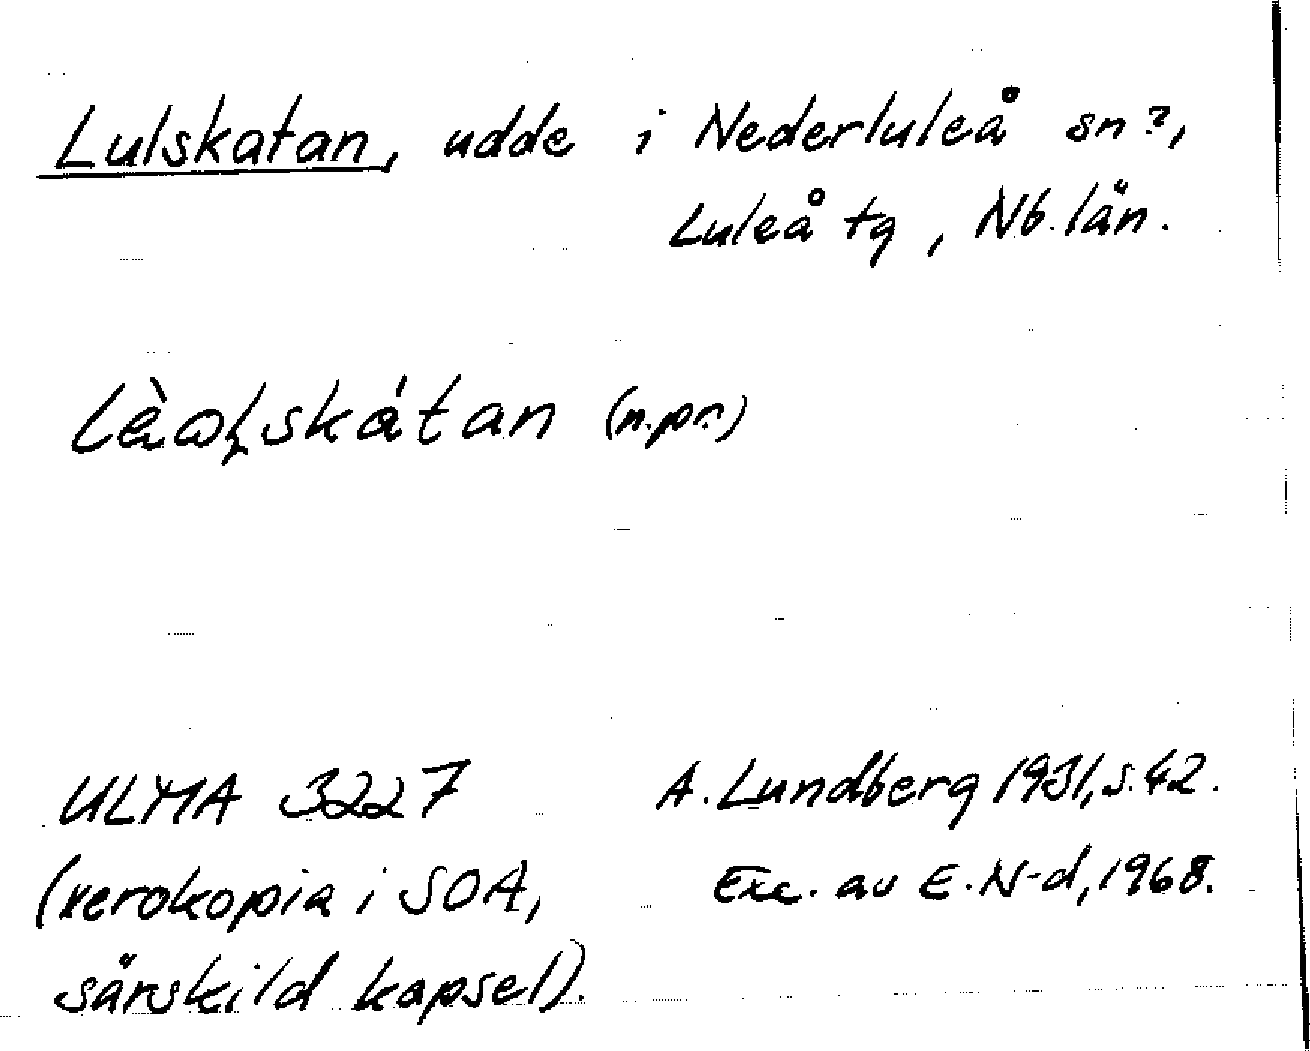 Lulskatan, udde i Nederluleå sn?,
Luleå tg, Nb. län.
(n.pr.)
ULMA 3227
(xerokopia i SOA,
särskild kapsel).
A. Lundberg 1931, s. 42.
Exc. av E. N-d, 1968.